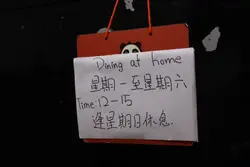 Dining at home
星期一至星期六
Time:12-15
逢星期日休息.